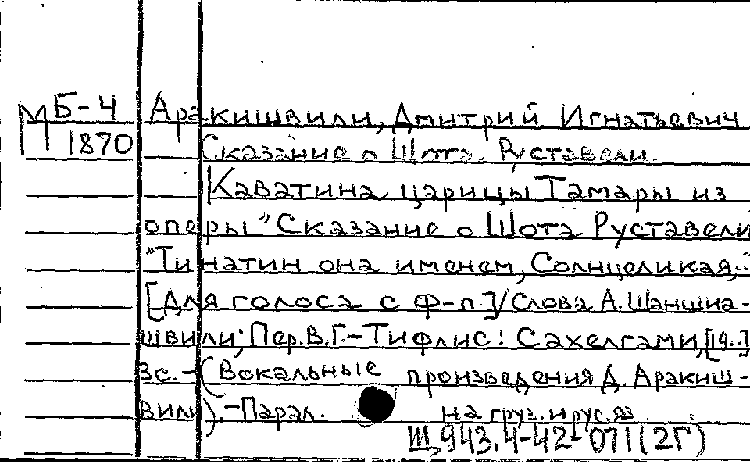 МБ-4 Аракишвили, Дмитрий Игнатьевич
1870 Сказание о Шота Руставели.
Каватина царицы Тамары из
оперы "Сказание о Шота Руставели
"Тинатин она именем, Солнцеликая,-"
[Для голоса с ф-п.]/Слова А. Шаншиа-
швили; Пер. В.Г.-Тифлис: Сахелгами, [19..]
3с.-(Вокальные произведения Д. Аракиш-
вили).-Парал. на груз. и рус. яз
Щ943.4-42-071(2Г)